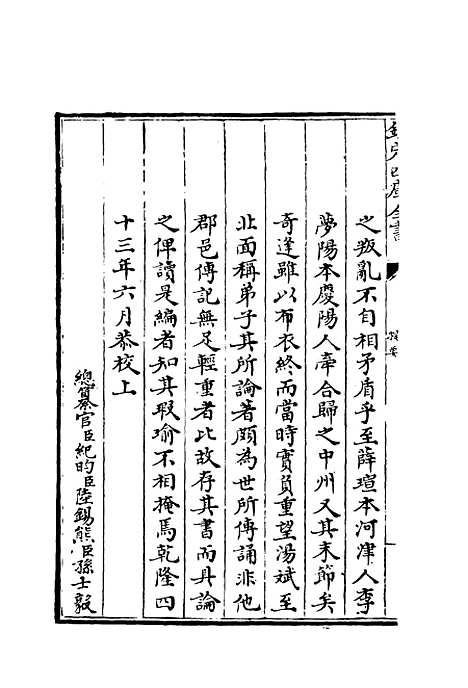 欽定四庫全書
提要
之叛亂不自相矛盾乎至薛瑄本河津人李
夢陽本慶陽人牽合歸之中州又其末節矣
奇逢雖以布衣終而當時實負重望湯斌至
北面稱弟子其所論著頗為世所傳誦非他
郡邑傳記無足輕重者比故存其書而具論
之俾讀是編者知其瑕瑜不相掩焉乾隆四
十三年六月恭校上
總纂官臣紀昀臣陸錫熊臣孫士毅